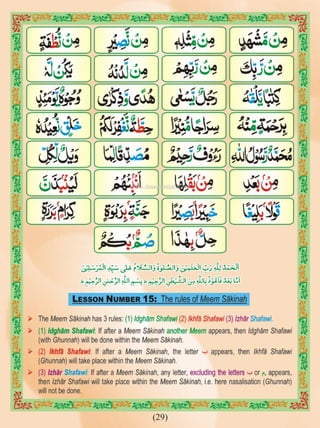 مِنْ مَّشْهَدِ مِنْ مِّثْلِهٖ مِنْ نُّطْفَةٍ
مِنْ رَّبِّكَ مِنْ رَّبِّهِمْ مِنْ لَّدُنْهُ يَكُنْ لَّهٗ
كِتٰبًا يَّلْقٰىهُ رَجُلٌ يَّسْعٰى هُدًى وَّذِكْرٰى وُجُوْهٌ يَّوْمَئِذٍ
بِرَحْمَةٍ مِّنْهُ سِرَاجًا مُّنِيْرًا حِطَّةٌ نَّغْفِرْ لَكُمْ خَلْقٍ نُّعِيْدُهٗ
مُحَمَّدٌ رَّسُوْلُ اللهِ رَءُوْفٌ رَّحِيْمٌ مُصَدِّقًا لِّمَا وَيْلٌ لِّكُلِّ
مِنْۢ بَعْدِ مِنْۢ بَقْلِهَا اَنْۢبِئْهُمْ لَيُنْۢبَذَنَّ
قَوْلًاۢ بَلِيْغًا خَبِيْرًاۢ بَصِيْرًا جَنَّةٍۢ بِرَبْوَةٍ كِرَامٍۢ بَرَرَةٍ
حِلٌّۢ بِهٰذَا صُمٌّۢ بُكْمٌ
اَلْحَمْدُ لِلّٰهِ رَبِّ الْعٰلَمِيْنَ وَالصَّلٰوةُ وَالسَّلَامُ عَلٰى سَيِّدِ الْمُرْسَلِيْنَ
اَمَّا بَعْدُ فَاَعُوْذُ بِاللّٰهِ مِنَ الشَّيْطٰنِ الرَّجِيْمِ بِسْمِ اللّٰهِ الرَّحْمٰنِ الرَّحِيْمِ
LESSON NUMBER 15: The rules of Meem Sākinah
➢ The Meem Sākinah has 3 rules: (1) Idghām Shafawi (2) Ikhfā Shafawi (3) Izhār Shafawi.
➢ (1) Idghām Shafawi: If after a Meem Sākinah another Meem appears, then Idghām Shafawi
(with Ghunnah) will be done within the Meem Sākinah.
➢ (2) Ikhfā Shafawi: If after a Meem Sākinah, the letter ب appears, then Ikhfā Shafawi
(Ghunnah) will take place within the Meem Sākinah.
➢ (3) Izhār Shafawi: If after a Meem Sākinah, any letter, excluding the letters ب or م, appears,
then Izhār Shafawi will take place within the Meem Sākinah, i.e. here nasalisation (Ghunnah)
will not be done.
(29)